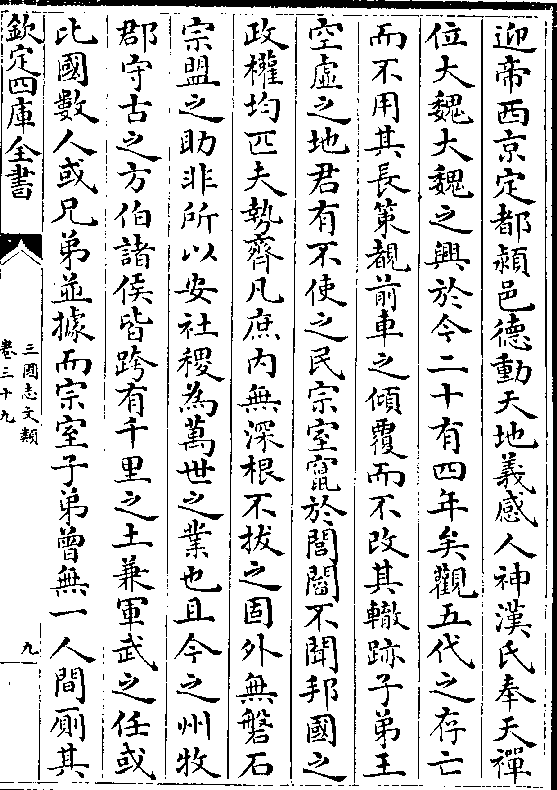 迎帝西京定都潁邑德動天地義感人神漢氏奉天禪
位大魏大魏之興於今二十有四年矣觀五代之存亡
而不用其長策覩前車之傾覆而不改其轍跡子弟王
空虛之地君有不使之民宗室竄於閭閻不聞邦國之
政權均匹夫勢齊凡庶内無深根不拔之固外無磐石
宗盟之助非所以安社稷為萬世之業也且今之州牧
郡守古之方伯諸侯皆跨有千里之土兼軍武之任或
比國數人或兄弟並據而宗室子弟曾無一人間厠其
欽定四庫全書
三國志文類
卷三十九
九